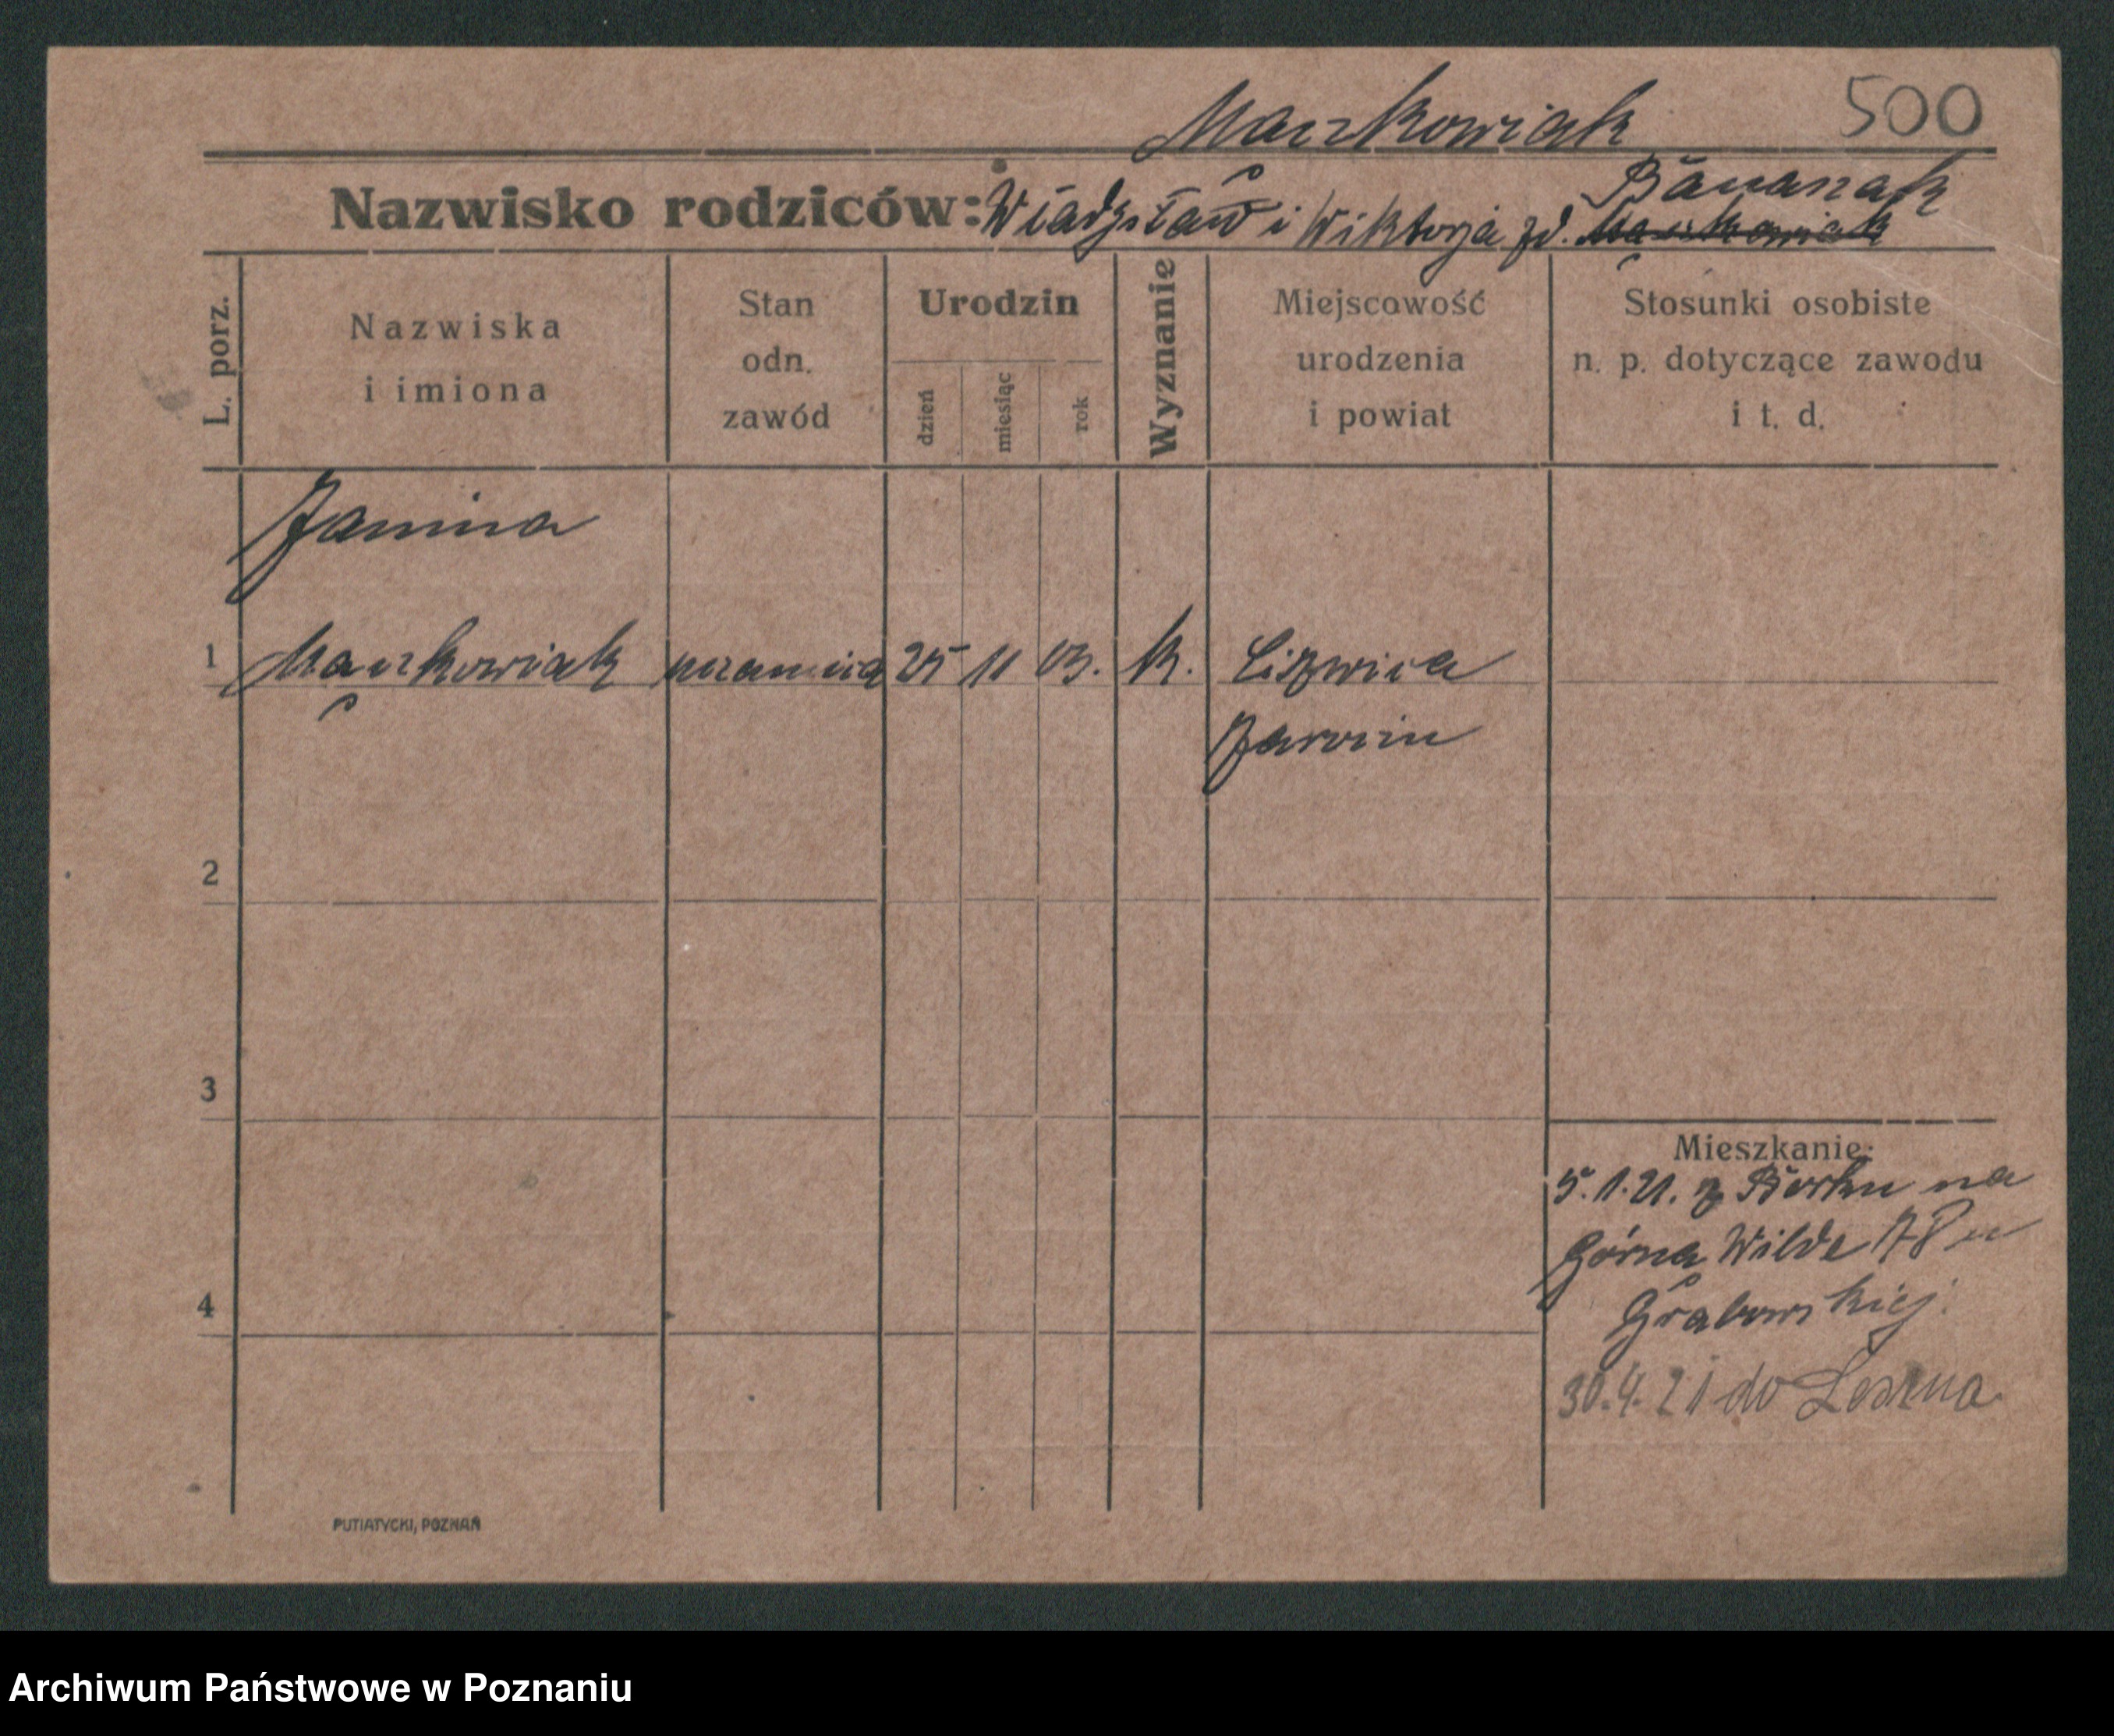 500
Maczkowiak
Nazwisko rodziców: Władysław i Wiktorja zd. Banaszak
L. porz.
Nazwiska i imiona
Stan odn. zawód
Urodzin
dzień
miesiąc
rok
Wyznanie
Miejscowość urodzenia i powiat
Stosunki osobiste n. p. dotyczące zawodu i t. d.
Janina
1 Maczkowiak 25 11 03. k.
2
3
4
Mieszkanie:
5.1.21. z Borku na
Górna Wilde 78 u
Grabowskiej.
30.4.21 do Leszna
PUTIATYCKI, POZNAŃ
Archiwum Państwowe w Poznaniu